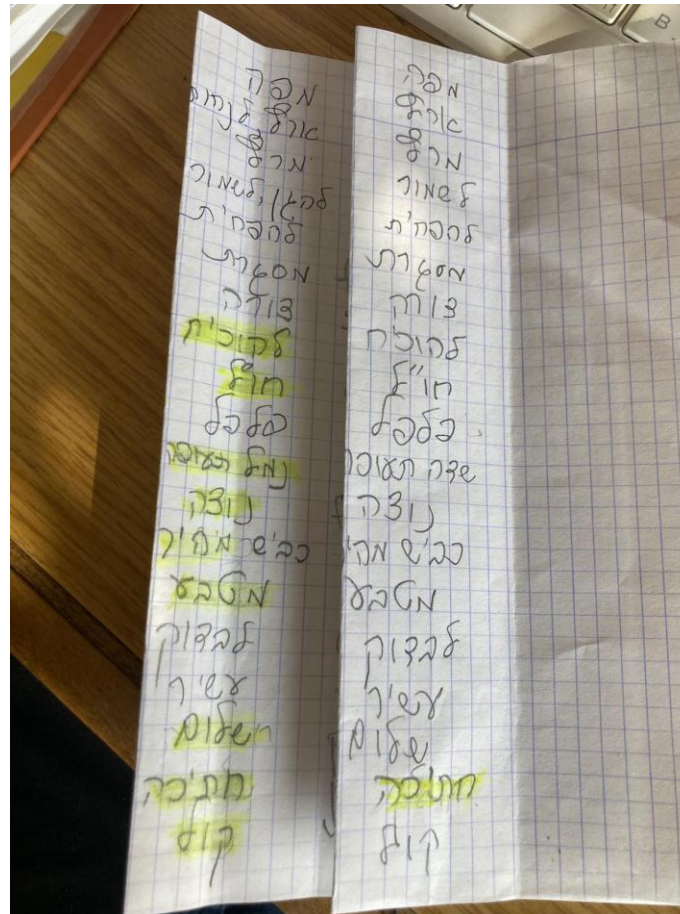 מפה
ארץ
מרץ
לשמור
להפחית
מסגרת
צורה
להוכיח
חו"ל
פלפל
שדה תעופה
נוצה
כביש
מטבע
לבדוק
עשיר
שלום
חתיכה
קוף
מפה
ארץ לנחות
מרץ
להגן, לשמור
להפחית
מסגרת
צורה
להוכיח
חו"ל
פלפל
נמל תעופה
נוצה
כביש מהיר
מטבע
לבדוק
עשיר
שלום
חתיכה
קוף